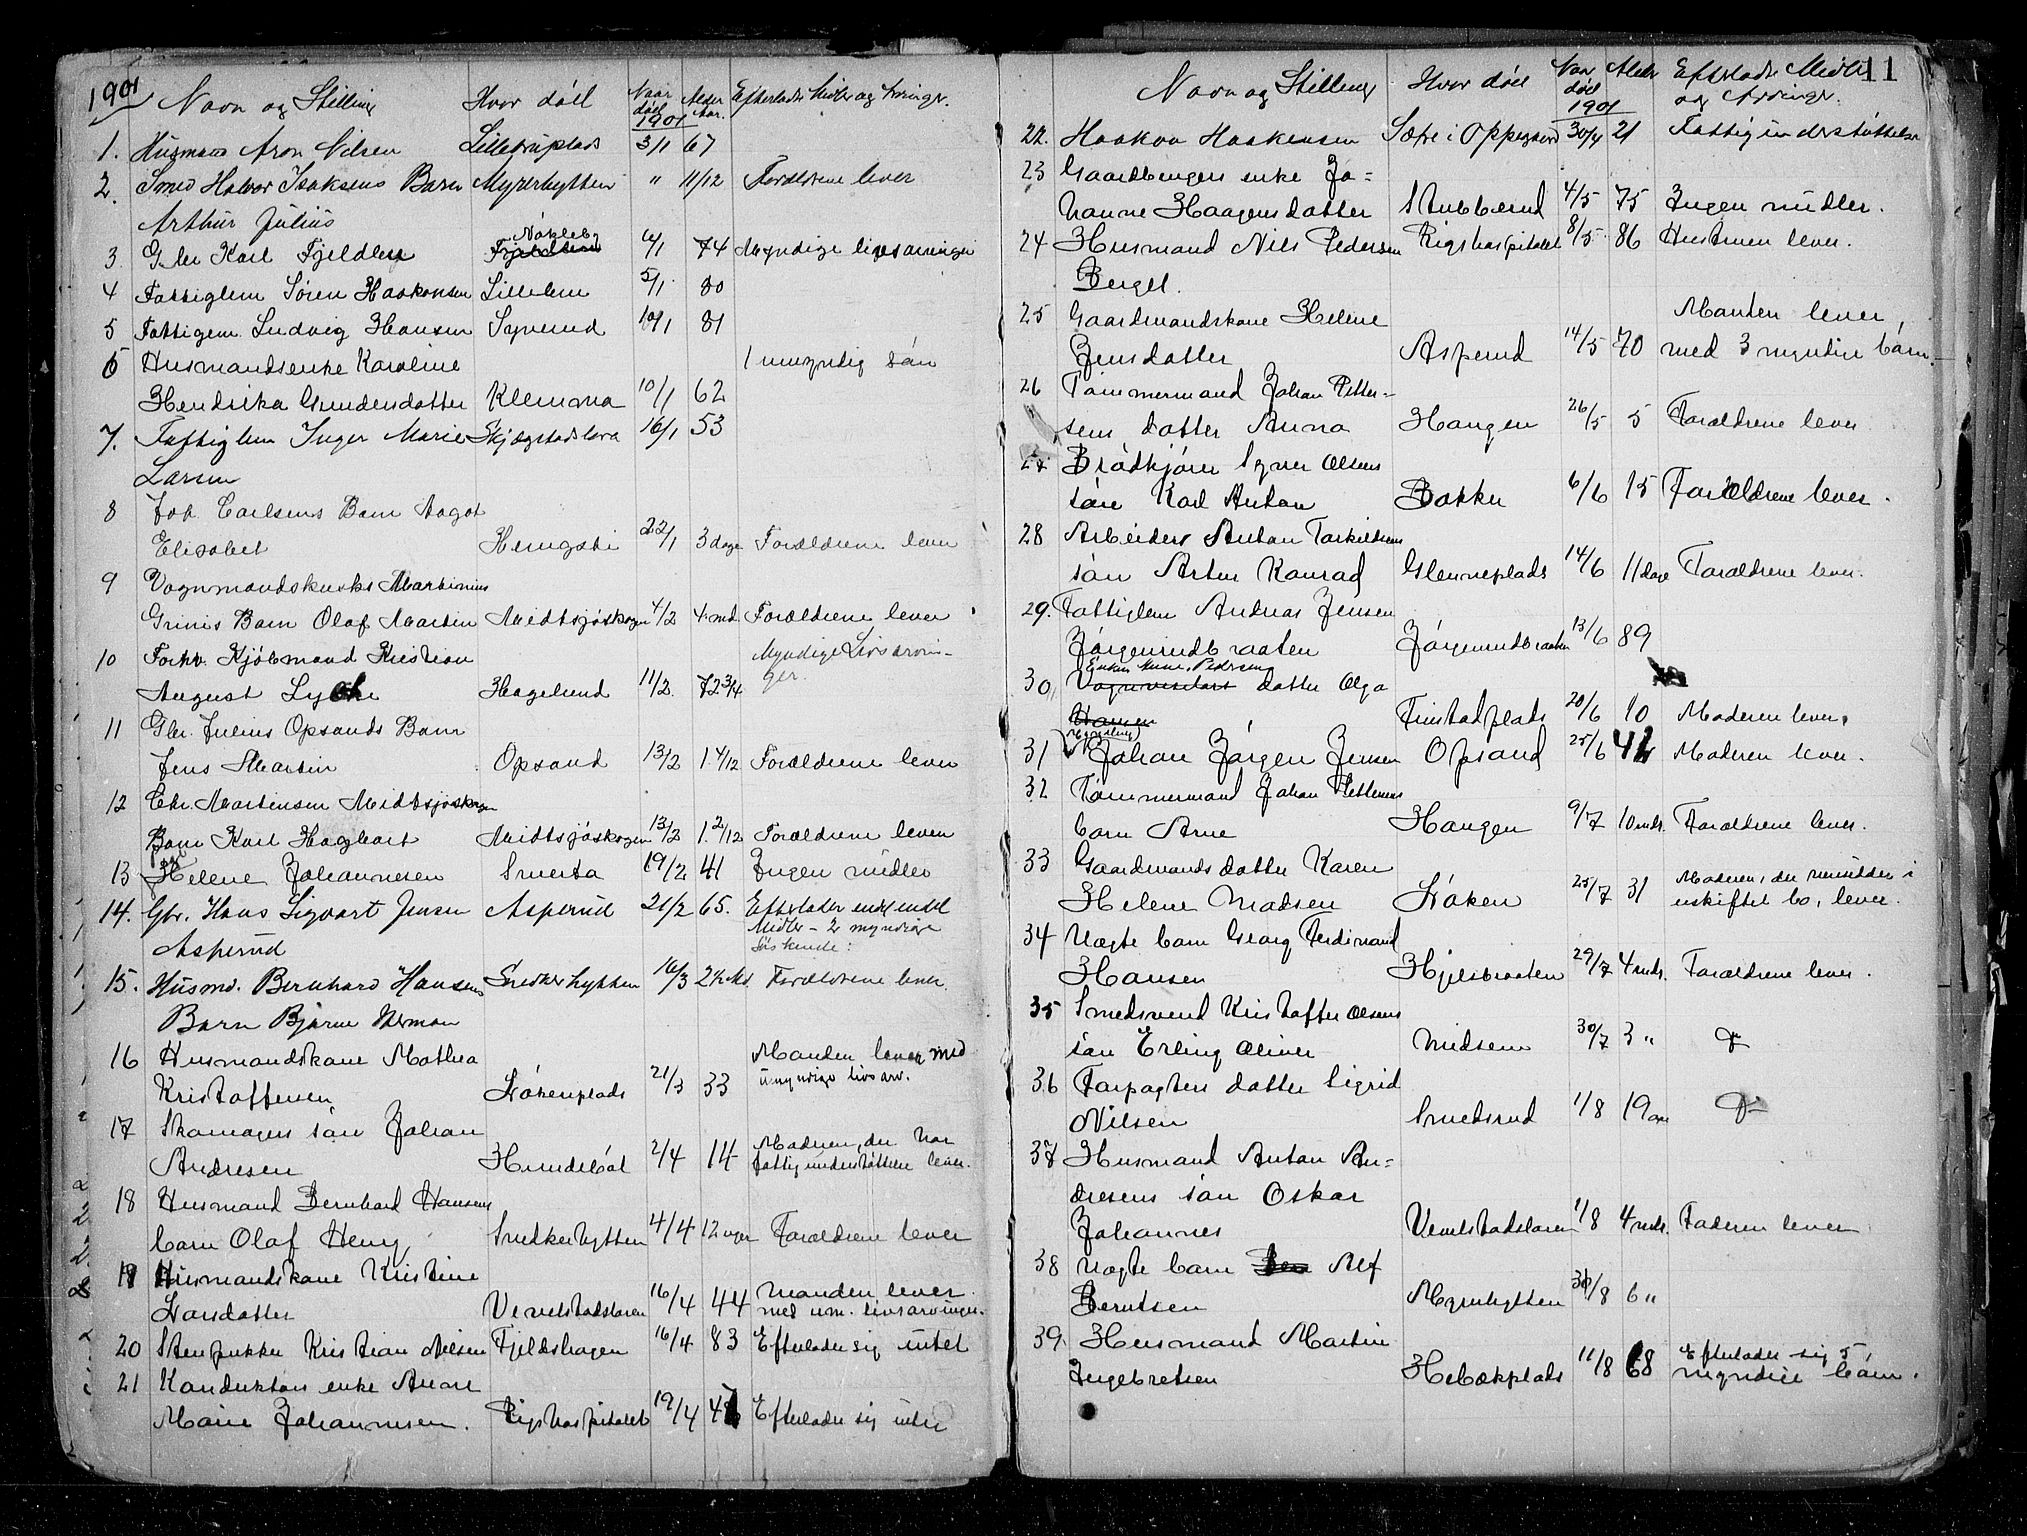 1901 Navn og Stilling Hvor död Naar död 1901 Alder Aar. Efterladte Midler og Arvinger.
1. Husmand Aron Nilsen Lilletruplads 3/1 67
2. Smed Halvor Isaksens Barn Myrerhytten " 11/12 Forældrene lever
Arthur Julius
Nökleby
3 Gbr Karl Fjeldby 6/1 74 Myndige livsarvinger
4 Fattiglem Sören Haakonsen Lillelem 5/1 80
5 Fattiglem Ludvig Hansen Syverud 10/1 81
6 Husmandsenke Karoline 1 umyndig sön
Hendrika Gundersdatter Klemma 10/1 62
7. Fattiglem Inger Marie Skjægstadslora 16/1 53
Larsen
8 Joh. Carlsens Barn Aagot
Elisabet Hengsti 22/1 3 dage Forældrene lever
9 Vognmandskusks Martinius
Grinis Barn Olaf Martin Midtsjöskogen 4/2 4 md. Forældrene lever
10 Forhv. Kjöbmand Kristian Myndige Livsarvin-
August Lyche Hagelund 11/2 72 3/4 ger.
11 Gbr. Julius Opsands Barn
Jens Martin Opsand 13/2 1 4/12 Forældrene lever
12 Chr. Martinsen Midtsjöskogen
Barn Karl Hagbart Midtsjöskogen 13/2 1 2/12 Forældrene leven
13 Helene Johannesen Smerta 19/2 41 Ingen midler
14. Gbr. Hans Sigvart Jensen Asperud 21/2 65. Efterlader endel
Midler - 2 myndige
Asperud söskende:
15. Husmd. Bernhard Hansens Snekkerhytten 16/3 2½ Md. Forældrene lever.
Barn Bjarne Herman
16 Husmandskone Mathea Manden lever med
umyndige livsarv.
Kristoffersen Lökenplads 21/3 33
17 Skomagers sön Johan
Andresen Hundeböl 2/4 14 Moderen, der har
fattigunderstöttelse lever.
18 Husmand Bernhard Hansens
barn Olaf Henry Snedkerhytten 4/4 12 uger Forældrene lever
19 Husmandskone Kristine
Larsdatter Vevelstadslaren 16/4 44 Manden lever
med um. livsarvinger.
20 Stenpukker Kristian Nilsen Fjeldshagen 16/4 83 Efterlader sig intet
21 Konduktörs enke Anne
Marie Johannesen. Rigshospitalet 19/4 47 Efterlader sig intet
11
Navn og Stilling Hvor död Naar död 1901 Alder Efterladte Midler
og Arvinger.
22. Haakon Haakensen Sætre i Oppegaard 30/4 21 Fattigunderstöttelse
23 Gaardbrugers enke Jo=
hanne Haagensdatter Stubberud 4/5 75 Ingen midler.
24 Husmand Nils Pedersen Rigshospitalet 8/5 86 Hustruen lever.
Berget.
25 Gaardmandskone Helene Manden lever
Jensdatter Asperud 14/5 70 med 3 myndige börn.
26 Tömmermand Johan Petter-
sens datter Anna Haugen 26/5 5 Forældrene lever
27 Brödkjörer Syver Olsens
sön Karl Anton Bakke 6/6 15 Forældrene lever.
28 Arbeider Anton Torkildsens
sön Artur Konrad Glenneplads 14/6 11 dage Forældrene lever.
29. Fattiglem Andreas Jensen
Jörgenrudbraaten Jörgenrudbraaten 13/6 89
Enken Anne Pedersens
30, Vognvisitørs datter Olga
Hansen Finstadplads 20/6 10 Moderen lever.
31 Johan Jörgen Jensen Opsand 25/6 Moderen lever.
32 Tömmermand Johan Pettersens
barn Arne Haugen 9/7 10 mdr. Forældrene lever.
33 Gaardmands datter Karen Moderen, der hensidder i
Helene Madsen Löken 25/7 31 uskiftet bo, lever.
34 Uægte barn Georg Ferdinand
Hansen Hjelsbraaten 29/7 4 mdr. Forældrene lever.
35 Smedsvend Kristoffer Olsens
sön Erling Oliver Midsem 30/7 3 "
36 Forpagters datter Sigrid
Nilsen Smedsrud 1/8 19 aar
37 Husmand Anton An=
dresens sön Oskar
Johannes Vevelstadslaren 1/8 4 mdr. Faderen lever
38 Uægte barn Alf
Berntsen Myrerhytten 30/8 6 "
39. Husmand Martin Efterlader sig 5
Ingebretsen Hebækplads 11/8 68 myndige börn.